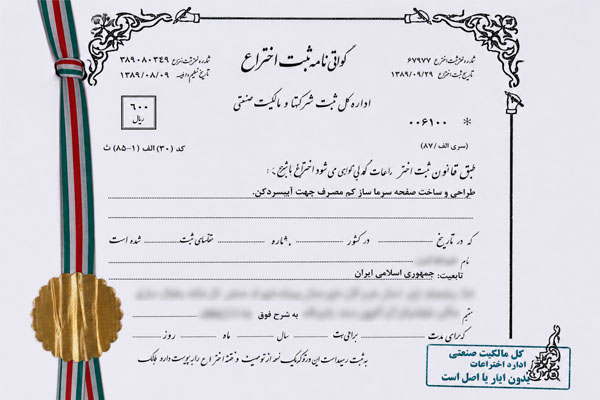 گواهی نامه ثبت اختراع
شماره ثبت اختراع ۶۷۹۷۷
تاریخ ثبت اختراع ۱۳۸۹/۰۹/۲۹
۳۸۹۰۸۰۳۴۹
۱۳۸۹/۰۸/۰۹
اداره کل ثبت شرکتها و مالکیت صنعتی
۶۰۰
ریال
* ۰۰۶۱۰۰
(سری الف/۸۷)
کد (۳۰) الف (۱-۸۵) ث
طبق قانون ثبت اختراعات گواهی می شود اختراع
طراحی و ساخت صفحه سرما ساز کم مصرف جهت آیبسردکن.
که در تاریخ در کشور بشماره تقاضای ثبت شده است
نام
تابعیت: جمهوری اسلامی ایران
مقیم به شرح فوق
که برای مدت سال ماه روز
به ثبت رسیده است این ورقه که یک نسخه از توصیف و نقشه اختراع را پیوست دارد
کل مالکیت صنعتی
اداره اختراعات
بدون ابار با اصل است